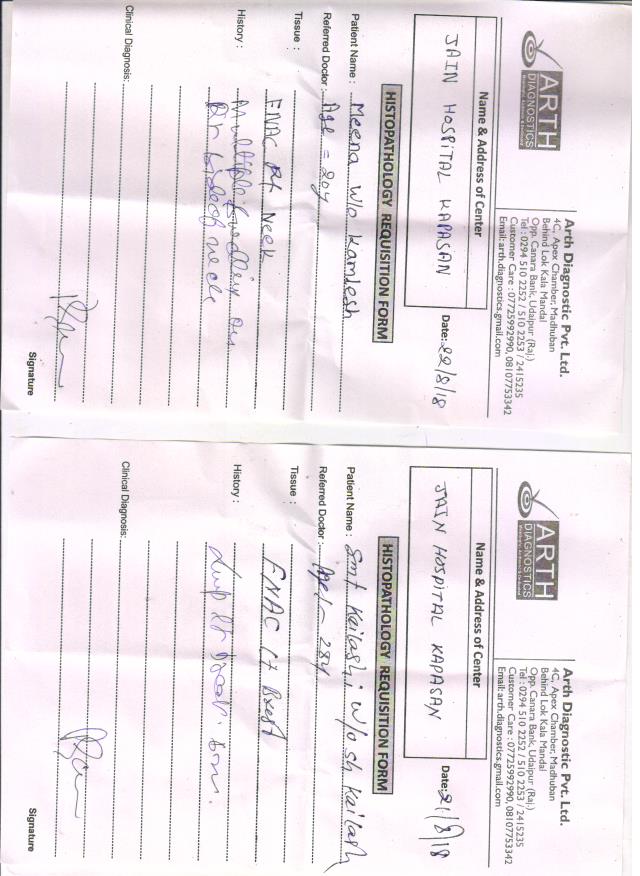 ARTH
DIAGNOSTICS
Arth Diagnostic Pvt. Ltd.
4C, Apex Chamber, Madhuban
Behind Lok Kala Mandal
Opp. Canara Bank, Udaipur (Raj.)
Tel : 0294 510 2252 / 510 2253 / 2415235
Customer Care : 07725992990, 08107753342
Email: arth.diagnostics.gmail.com
Name & Address of Center
JAIN HOSPITAL KAPASAN
Date: 22/8/18
HISTOPATHOLOGY REQUISITION FORM
Patient Name : Meena w/o Kamlesh
Referred Doctor : Age = 20y
Tissue : FNAC Rt Neck
History : Multiple
Rt side of neck
Clinical Diagnosis:
Signature
ARTH
DIAGNOSTICS
Arth Diagnostic Pvt. Ltd.
4C, Apex Chamber, Madhuban
Behind Lok Kala Mandal
Opp. Canara Bank, Udaipur (Raj.)
Tel : 0294 510 2252 / 510 2253 / 2415235
Customer Care : 07725992990, 08107753342
Email: arth.diagnostics.gmail.com
Name & Address of Center
JAIN HOSPITAL KAPASAN
Date: 21/8/18
HISTOPATHOLOGY REQUISITION FORM
Patient Name : Smt Kailashi w/o sh Kailash
Referred Doctor : Age - 28y
Tissue : FNAC
History :
Clinical Diagnosis:
Signature